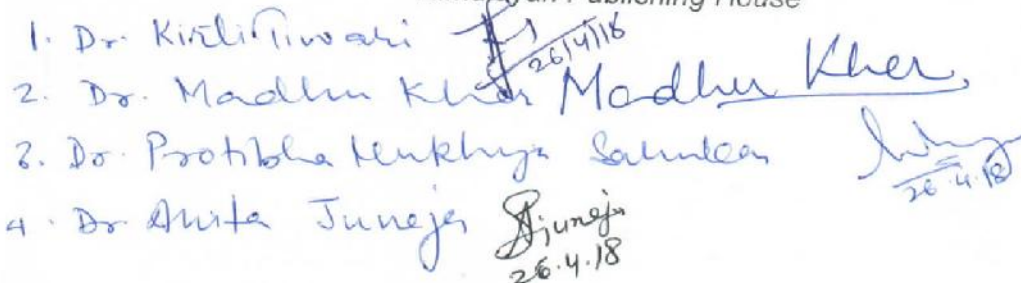 Publishing House
1. Dr. Kirti Tiwari 26/4/18
2. Dr. Madhu Kher Madhu Kher
3. Dr. Protibha Mukhrja Sahukar 26.4.18
4. Dr Anita Juneja Ajuneja
26.4.18